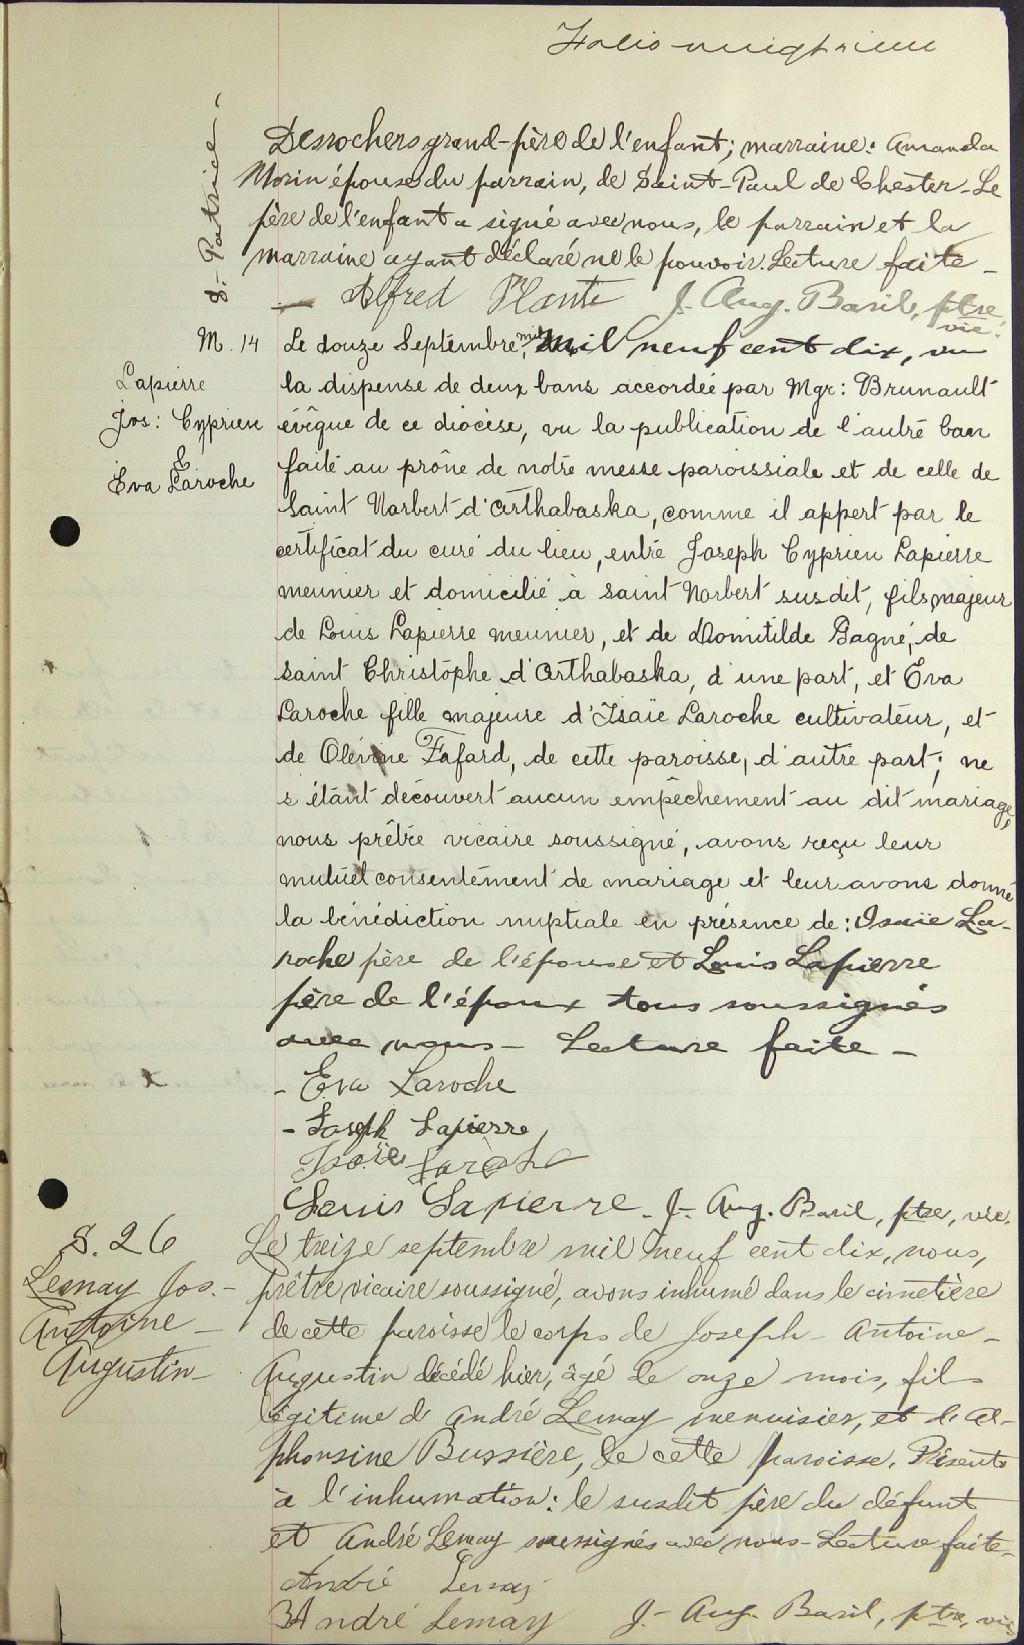 Folio
S. Patrice
Desrochers grand-père de l'enfant; marraine: Amanda
Morin épouse du parrain, de Saint-Paul de Chester. Le
père de l'enfant a signé avec nous, le parrain et la
marraine ayant déclaré ne le pouvoir. Lecture faite -
Alfred Plante J. Aug. Baril, ptre vic.
M. 14
Lapierre
Jos: Cyprien
&
Eva Laroche
Le douze Septembre, mil neuf cent dix, vu
la dispense de deux bans accordée par Mgr: Brunault
évêque de ce diocèse, vu la publication de l'autre ban
faite au prône de notre messe paroissiale et de celle de
Saint Norbert d'Arthabaska, comme il appert par le
certificat du curé du lieu, entre Joseph Cyprien Lapierre
meunier et domicilié à saint Norbert susdit, fils majeur
de Louis Lapierre meunier, et de Domitilde Gagné, de
Saint Christophe d'Arthabaska, d'une part, et Eva
Laroche fille majeure d'Isaïe Laroche cultivateur, et
de Olévine Fafard, de cette paroisse, d'autre part; ne
s'étant découvert aucun empêchement au dit mariage,
nous prêtre vicaire soussigné, avons reçu leur
mutuel consentement de mariage et leur avons donné
la bénédiction nuptiale en présence de: Isaïe La-
roche père de l'épouse et Louis Lapierre
père de l'époux tous soussignés
avec nous - Lecture faite -
- Eva Laroche
- Joseph Lapierre
Isaïe Laroche
Louis Lapierre. J- Aug. Baril, ptre, vic.
S. 26
Lemay Jos. -
Antoine -
Augustin -
Le treize septembre mil neuf cent dix, nous,
prêtre vicaire soussigné, avons inhumé dans le cimetière
de cette paroisse le corps de Joseph - Antoine -
Augustin décédé hier, âgé de onze mois, fils
légitime d'André Lemay menuisier, et d'Al-
phonsine Bussière, de cette paroisse. Présents
à l'inhumation: le susdit père du défunt
et André Lemay soussignés avec nous - Lecture faite -
André Lemay
André Lemay J- Aug. Baril, ptre, vic